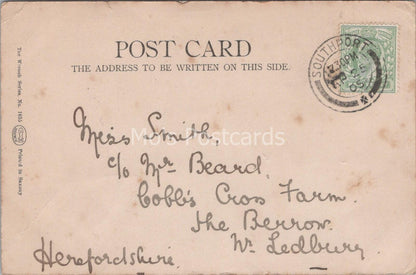 POST CARD
THE ADDRESS TO BE WRITTEN ON THIS SIDE.
The Wrench Series, No. 1455
Printed in Saxony
SOUTHPORT
Moo Postcards
Miss Smith,
c/o Mr Beard.
Cobb's Cross Farm.
The Berrow.
Nr Ledbury
Herefordshire